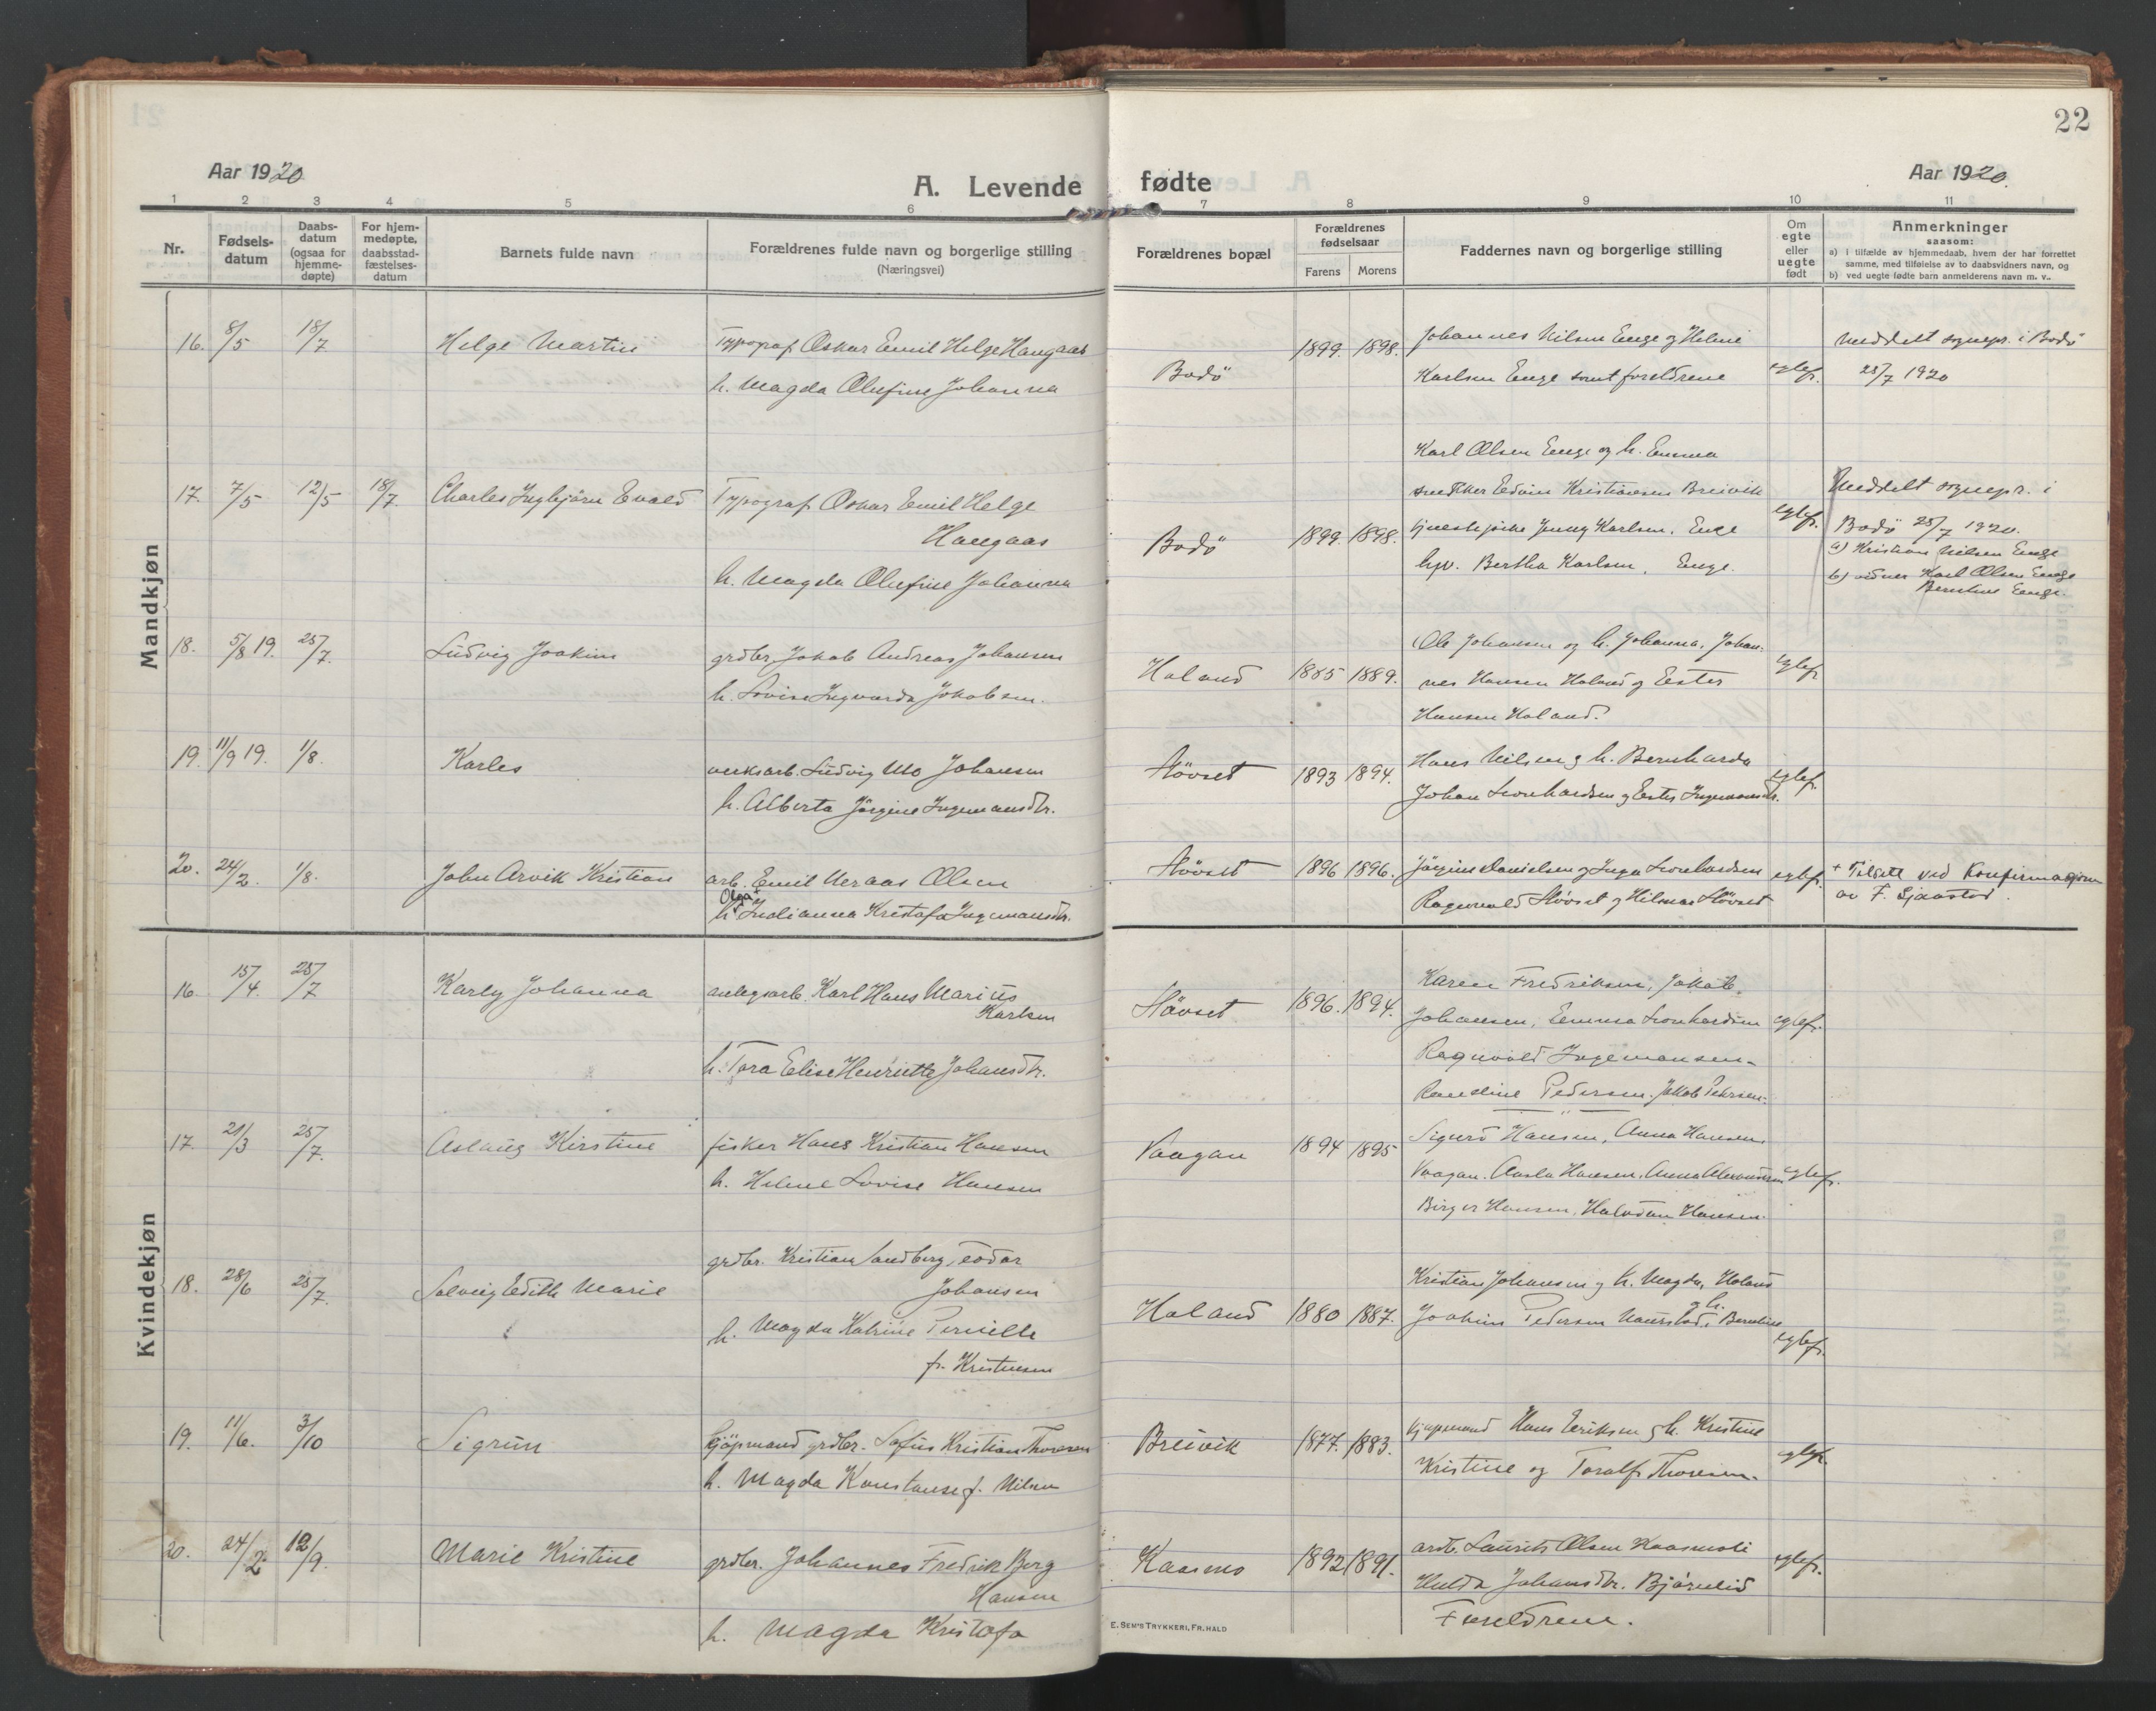 22
Aar 1920
A. Levende fødte
Aar 1920.
1 2 3 4 5 6 7 8 9 10 11
Nr.
Fødsels-
datum
Daabs-
datum
(ogsaa for
hjemme-
døpte)
For hjem-
medøpte,
daabsstad-
fæstelses-
datum
Barnets fulde navn
Forældrenes fulde navn og borgerlige stilling
(Næringsvei)
Forældrenes bopæl
Forældrenes
fødselsaar
Farens Morens
Faddernes navn og borgerlige stilling
Om
egte
eller
uegte
født
Anmerkninger
saasom:
a) i tilfælde av hjemmedaab, hvem der har forrettet
samme, med tilføielse av to daabsvidners navn, og
b) ved uegte fødte barn anmelderens navn m. v..
Mandkjøn
16. 8/5 18/7 Helge Martin
Typograf Oskar Emil Helge Haugaas
h. Magda Olufine Johanna
Bodö 1899. 1898.
Johannes Nilsen Enge og Helene
Karlsen Enge samt foreldrene
egtef.
Meddelt sognepr. i Bodö
25/7 1920
17. 7/5 12/5 18/7. Charles Ingbjörn Evald
Typograf Oskar Emil Helge
Haugaas
h. Magda Olufine Johanna
Bodö 1899. 1898.
Karl Olsen Enge og h. Emma
snedker Edvin Kristiansen Breivik
tjenestepike Jenny Karlsen, Enge
Bertha Karlsen, Enge.
egtef.
Meddelt sognepr. i
Bodö 25/7 1920.
a) Kristian Nilsen Enge
b) vidner Karl Olsen Enge
Berntine Enge.
18. 5/8 19. 25/7. Ludvig Joakim
grdbr. Jakob Andreas Johansen
h. Lovise Ingvarda Jakobsen.
Haland 1885 1889.
Ole Johansen og h. Johanna, Johan-
nes Hansen Haland og Ester
Hansen Haland.
egtef.
19. 11/9 19. 1/8. Karles
verksarb. Ludvig Uto Johansen
h. Alberta Jörgine Ingemansdtr.
Hövset 1893 1894.
Hans Nilsen og h. Bernharda
Johan Leonhardsen og Ester Ingemansdtr.
egtef.
20. 24/2. 1/8. John Arvik Kristian
arb. Emil Meraas Olsen
Olga+
h. Indianna Kristofa Ingemansdtr.
Hövset 1896 1896.
Jörgine Danielsen og Inga Leonhardsen
Ragnvald Hövset og Hilmar Hövset
egtef.
+ Tilsatt ved Konfirmasjon
av F. Sjaastad.
Kvindekjøn
16. 15/4. 25/7 Karly Johanna
anlegsarb. Karl Hans Marius
Karlsen
h. Tora Elise Henriette Johansdtr.
Hövset 1896. 1894.
Karen Fredriksen, Jakob
Johansen, Emma Leonhardsen
Ragnvald Ingemansen-
Randine Pedersen. Jakob Petersen.
egtef.
17. 21/3 25/7. Aslaug Kirstine
fisker Hans Kristian Hansen
h. Helene Lovise Hansen
Vaagan 1894 1895
Sigurd Hansen, Anna Hansen
Vaagan. Aasta Hansen, Anna
Birger Hansen, Halvdan Hansen.
egtef.
18. 28/6 25/7. Solveig Edith Marie
grdbr. Kristian Sandberg
Johansen
h. Magda Katrine Pernille
f. Kristensen
Haland 1880 1887.
Kristian Johansen og h. Magda, Haland
Joakim Pedersen Naurstad, og h. Berntine
egtef.
19. 11/6. 3/10 Sigrun
kjöpmand grdbr. Sofus Kristian Thoresen
h. Magda Konstanse f. Nilsen
Breivik 1877. 1883.
kjöpmand Hans Eriksen og h. Kristine
Kristine og Toralf Thoresen.
egtef.
20. 24/2. 12/9. Marie Kristine
grdbr. Johannes Fredrik Berg
Hansen
h. Magda Kristofa
Kaasmo 1892 1891.
Laurits Olsen Kaasmoli
Hulda Johansdtr. Bjørnlid
Foreldrene.
egtef.
E. SEM'S TRYKKERI, FR.HALD